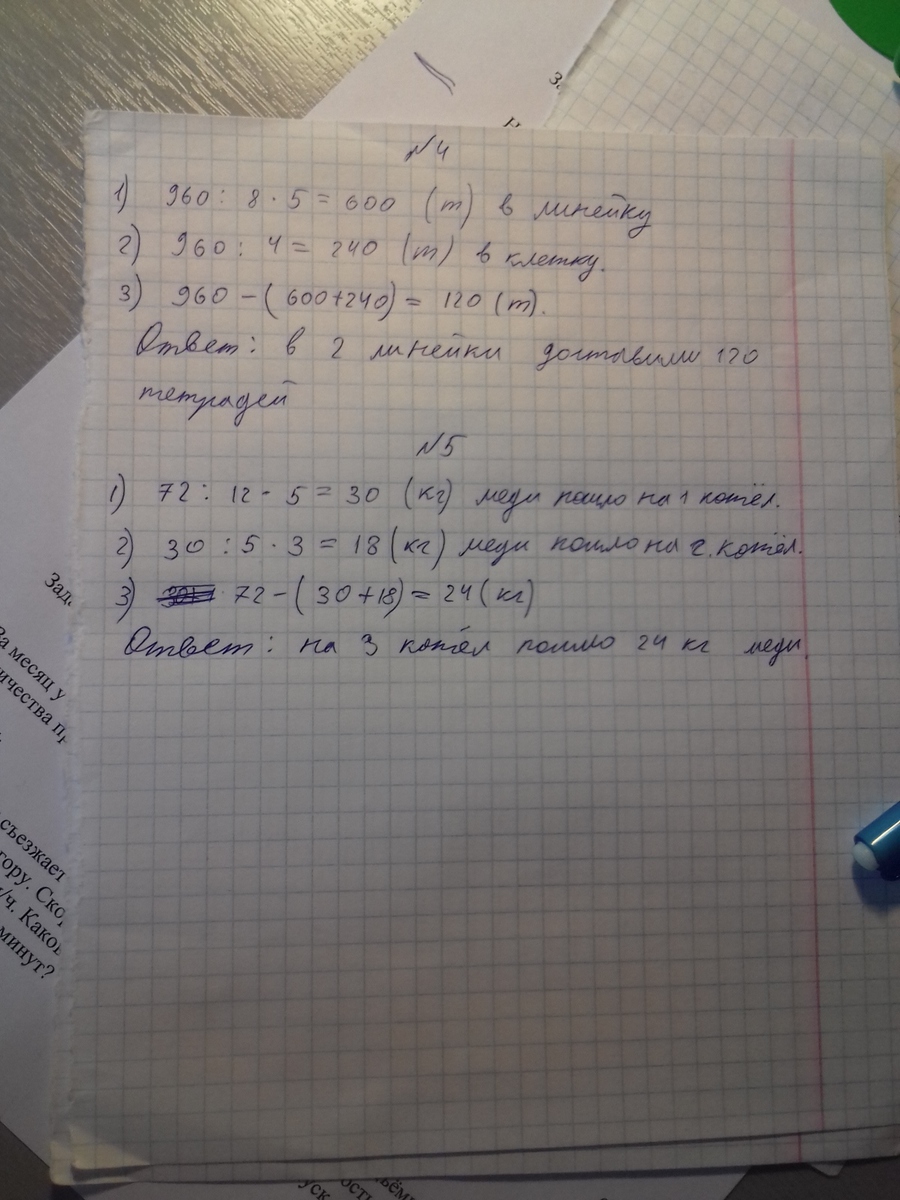 За
Н
N4
1) 960 : 8 · 5 = 600 (т) в линейку
2) 960 : 4 = 240 (т) в клетку.
3) 960 - (600+240) = 120 (т).
Ответ: в 2 линейки доставили 120
тетрадей
N5
1) 72 : 12 · 5 = 30 (кг) меди пошло на 1 котёл.
2) 30 : 5 · 3 = 18 (кг) меди пошло на 2. котёл.
3) 72 - (30+18) = 24 (кг)
Ответ: на 3 котёл пошло 24 кг меди.
Зада
За месяц у
ичества пр
съезжает
гору. Скор
/ч. Каков
минут?
ость
уск